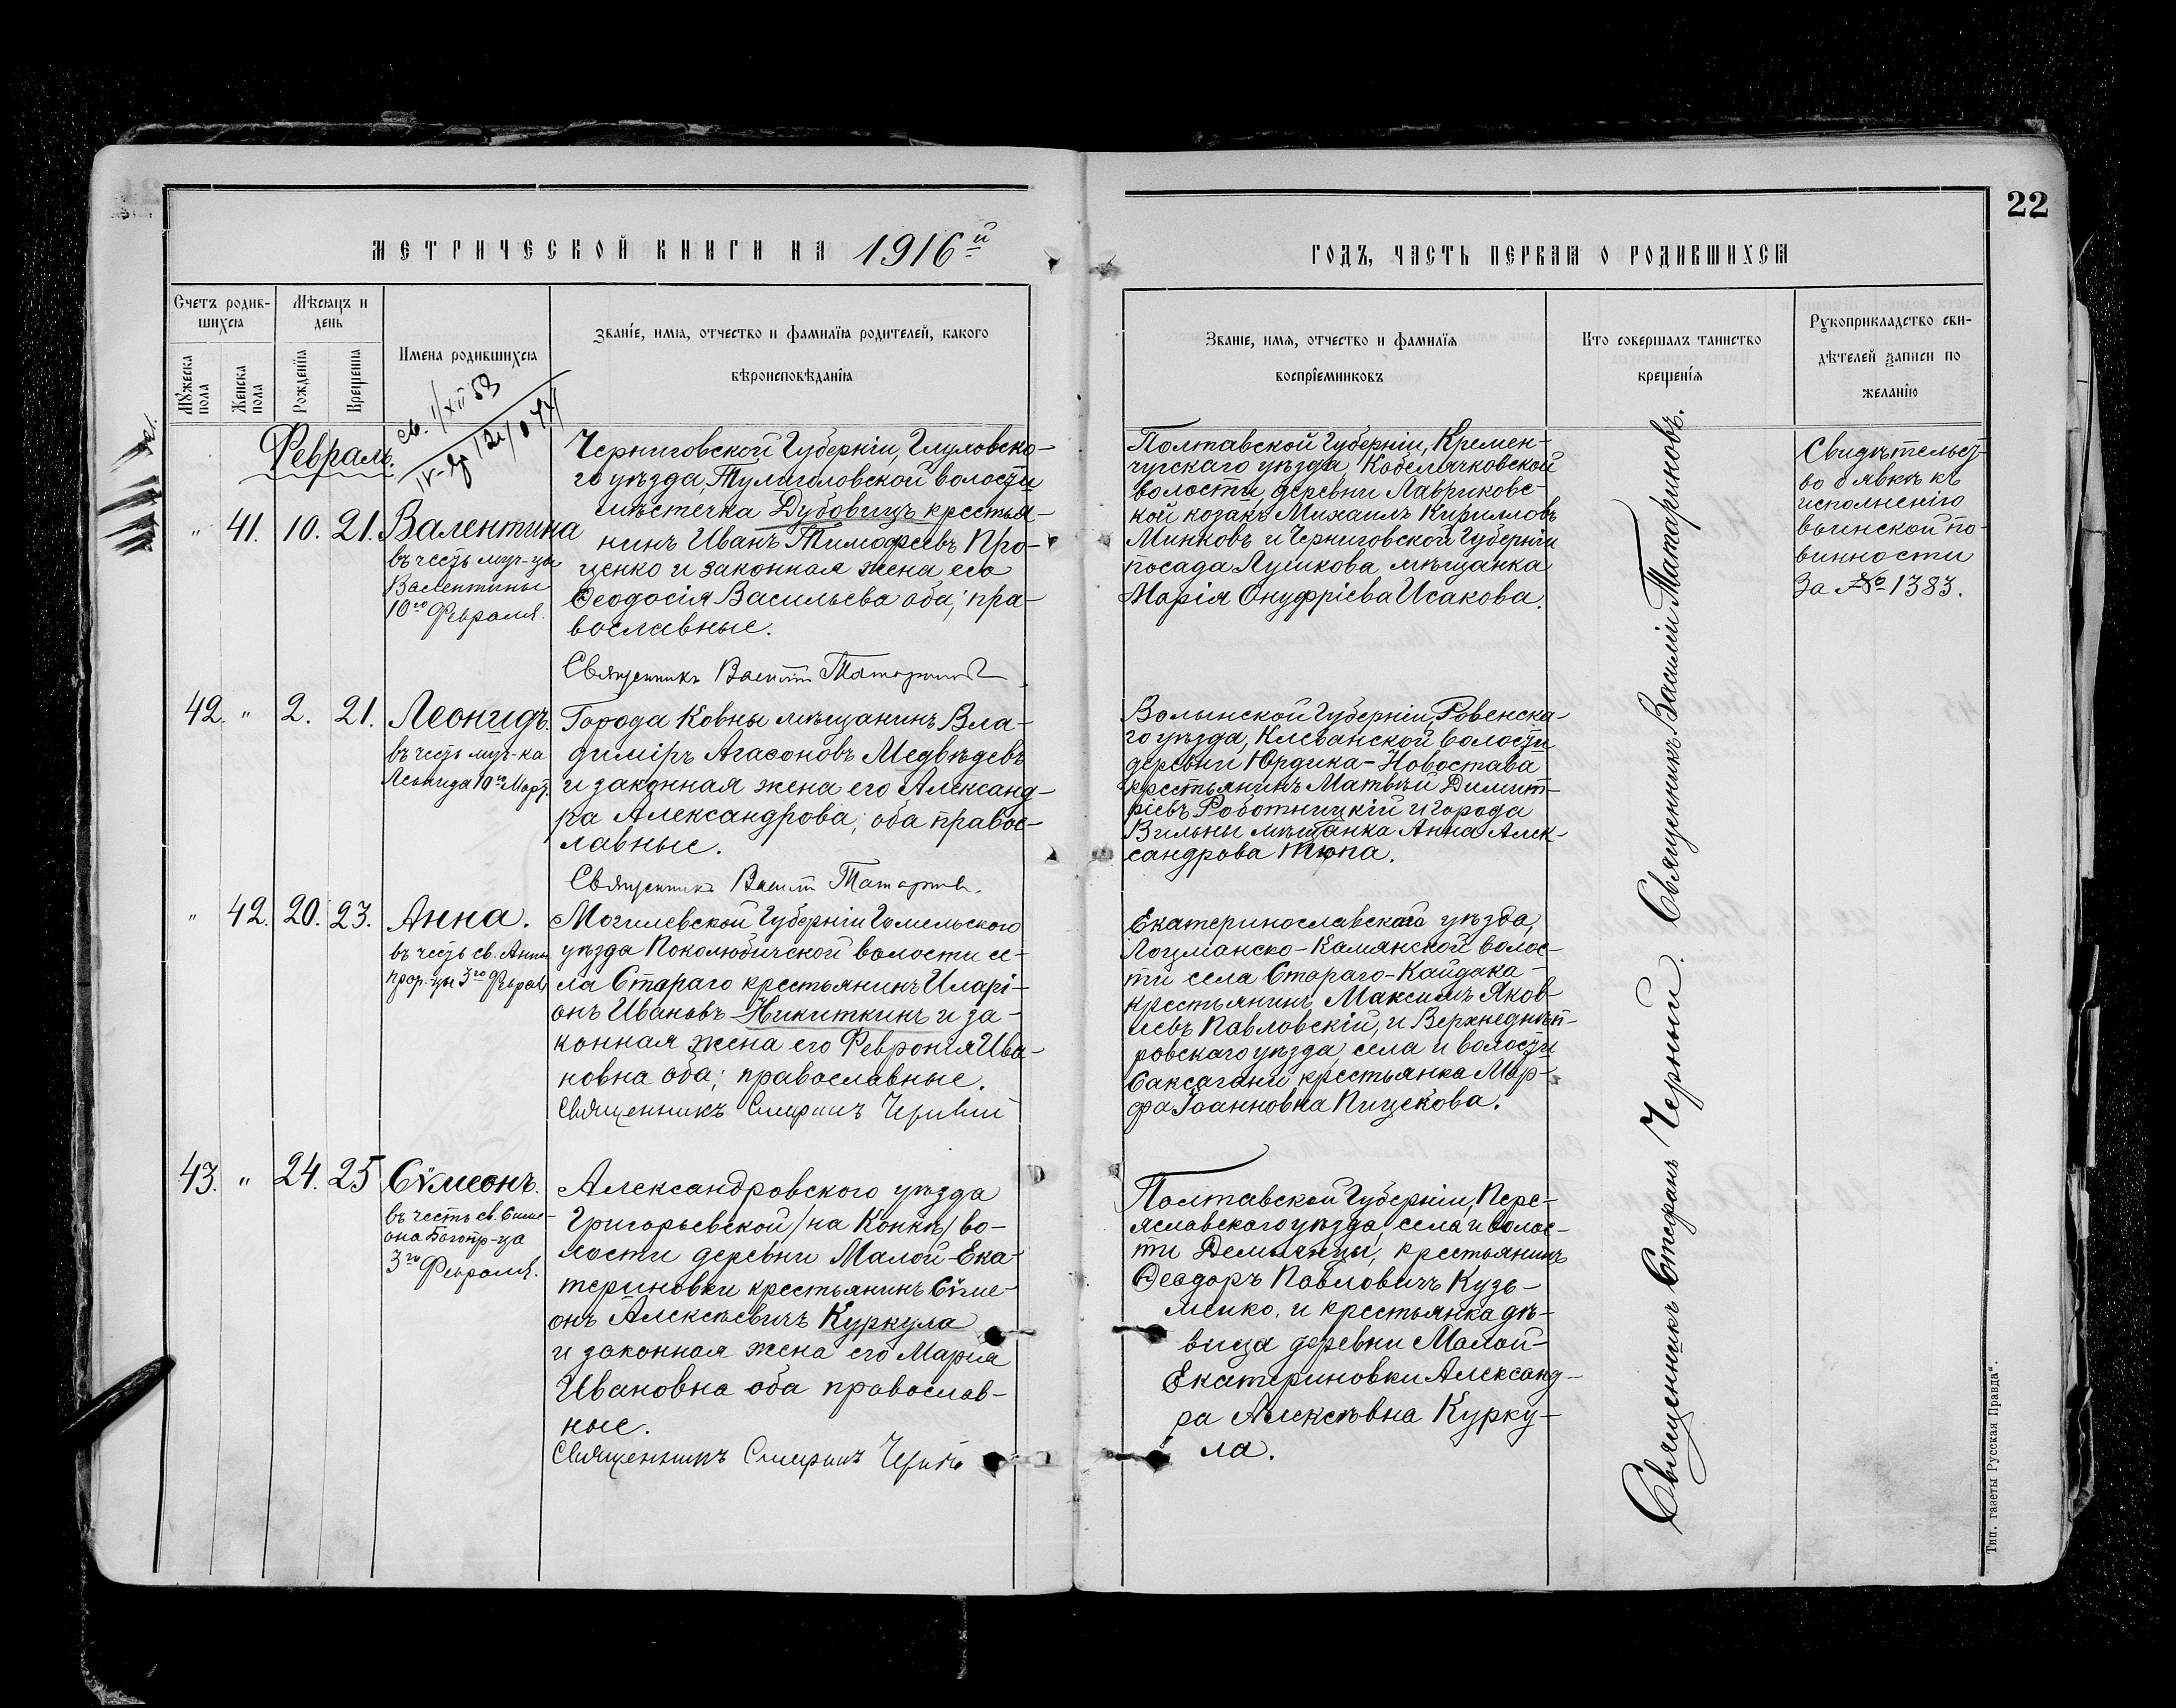 22
МЕТРИЧЕСКОЙ КНИГИ НА 1916й
ГОДЪ, ЧАСТЬ ПЕРВАЯ О РОДИВШИХСЯ
Счетъ родив-
шихся
Мѣсяцъ и
день
Мужеска
пола
Женска
пола
Рожденія
Крещенія
Имена родившихся
Званіе, имя, отчество и фамилія родителей, какого
вѣроисповѣданія
Званіе, имя, отчество и фамилія
воспріемниковъ
Кто совершалъ таинство
крещенія
Рукоприкладство сви-
дѣтелей записи по
желанію
Февраль.
св. 1/XII 53
" 41. 10. 21. Валентина
въ честь муч-цы
Валентины
10го Февраля.
Черниговской Губерніи, Глуховско-
го уѣзда, Тулиголовской волости
мѣстечка Дубовичъ крестья-
нинъ Иванъ Тимофеевъ Про-
ценко и законная жена его
Ѳеодосія Васильева оба; пра-
вославные.
Священникъ Василій Татариновъ
Полтавской Губерніи, Кремен-
чугскаго уѣзда, Кобелячковской
волости, деревни Лавриковс-
кой козакъ Михаилъ Кирилловъ
Минковъ и Черниговской Губерніи
посада Лужкова мѣщанка
Марія Онуфріева Исакова.
Свидѣтельст-
во о явкѣ къ
исполненію
воинской по-
винности
За № 1383.
42. " 2. 21. Леонидъ.
въ честь муч-ка
Леонида 10го Март.
Города Ковны мѣщанинъ Вла-
диміръ Агасоновъ Медвѣдевъ
и законная жена его Александ-
ра Александрова; оба правос-
лавные.
Священникъ Василій Татариновъ.
Волынской Губерніи, Ровенска-
го уѣзда, Клеванской волости
деревни Юрдика-Новостава
крестьянинъ Матвѣй Димит-
ріевъ Роботницкій и города
Вильны мѣщанка Анна Алек-
сандрова Тюпа.
" 42. 20. 23. Анна.
въ честь св. Анны
прор-цы 3го Феврал
Могилевской Губерніи Гомельского
уѣзда Поколюбичской волости се-
ла Стараго крестьянинъ Иларі-
онъ Ивановъ Никиткинъ и за-
конная жена его Февронія Ива-
новна оба; православные.
Священникъ Стефанъ Черный
Екатеринославскаго уѣзда,
Лоцманско-Камянской волос-
ти села Стараго-Кайдака-
крестьянинъ Максимъ Яков-
левъ Павловскій, и Верхнеднѣп-
ровскаго уѣзда, села и волости
Саксагани крестьянка Мар-
фа Іоанновна Пицекова.
43. " 24. 25 Сѵмеонъ.
въ честь св. Симе-
она Богопр-ца
3го Февраля.
Александровского уѣзда
Григорьевской (на Конкѣ) во-
лости деревни Малой-Ека-
териновки крестьянинъ Сѵме-
онъ Алексѣевичъ Куркула
и законная жена его Марія
Ивановна оба православ-
ные.
Священникъ Стефанъ Черный
Полтавской Губерніи, Пере-
яславского уѣзда, села и волос-
ти Демьянцы, крестьянинъ
Ѳеодоръ Павловичъ Кузь-
менко, и крестьянка дѣ-
вица деревни Малой-
Екатериновки Александ-
ра Алексѣевна Курку-
ла.
Священникъ Василій Татариновъ.
Священникъ Стефанъ Черный.
Тип. газеты Русская Правда".